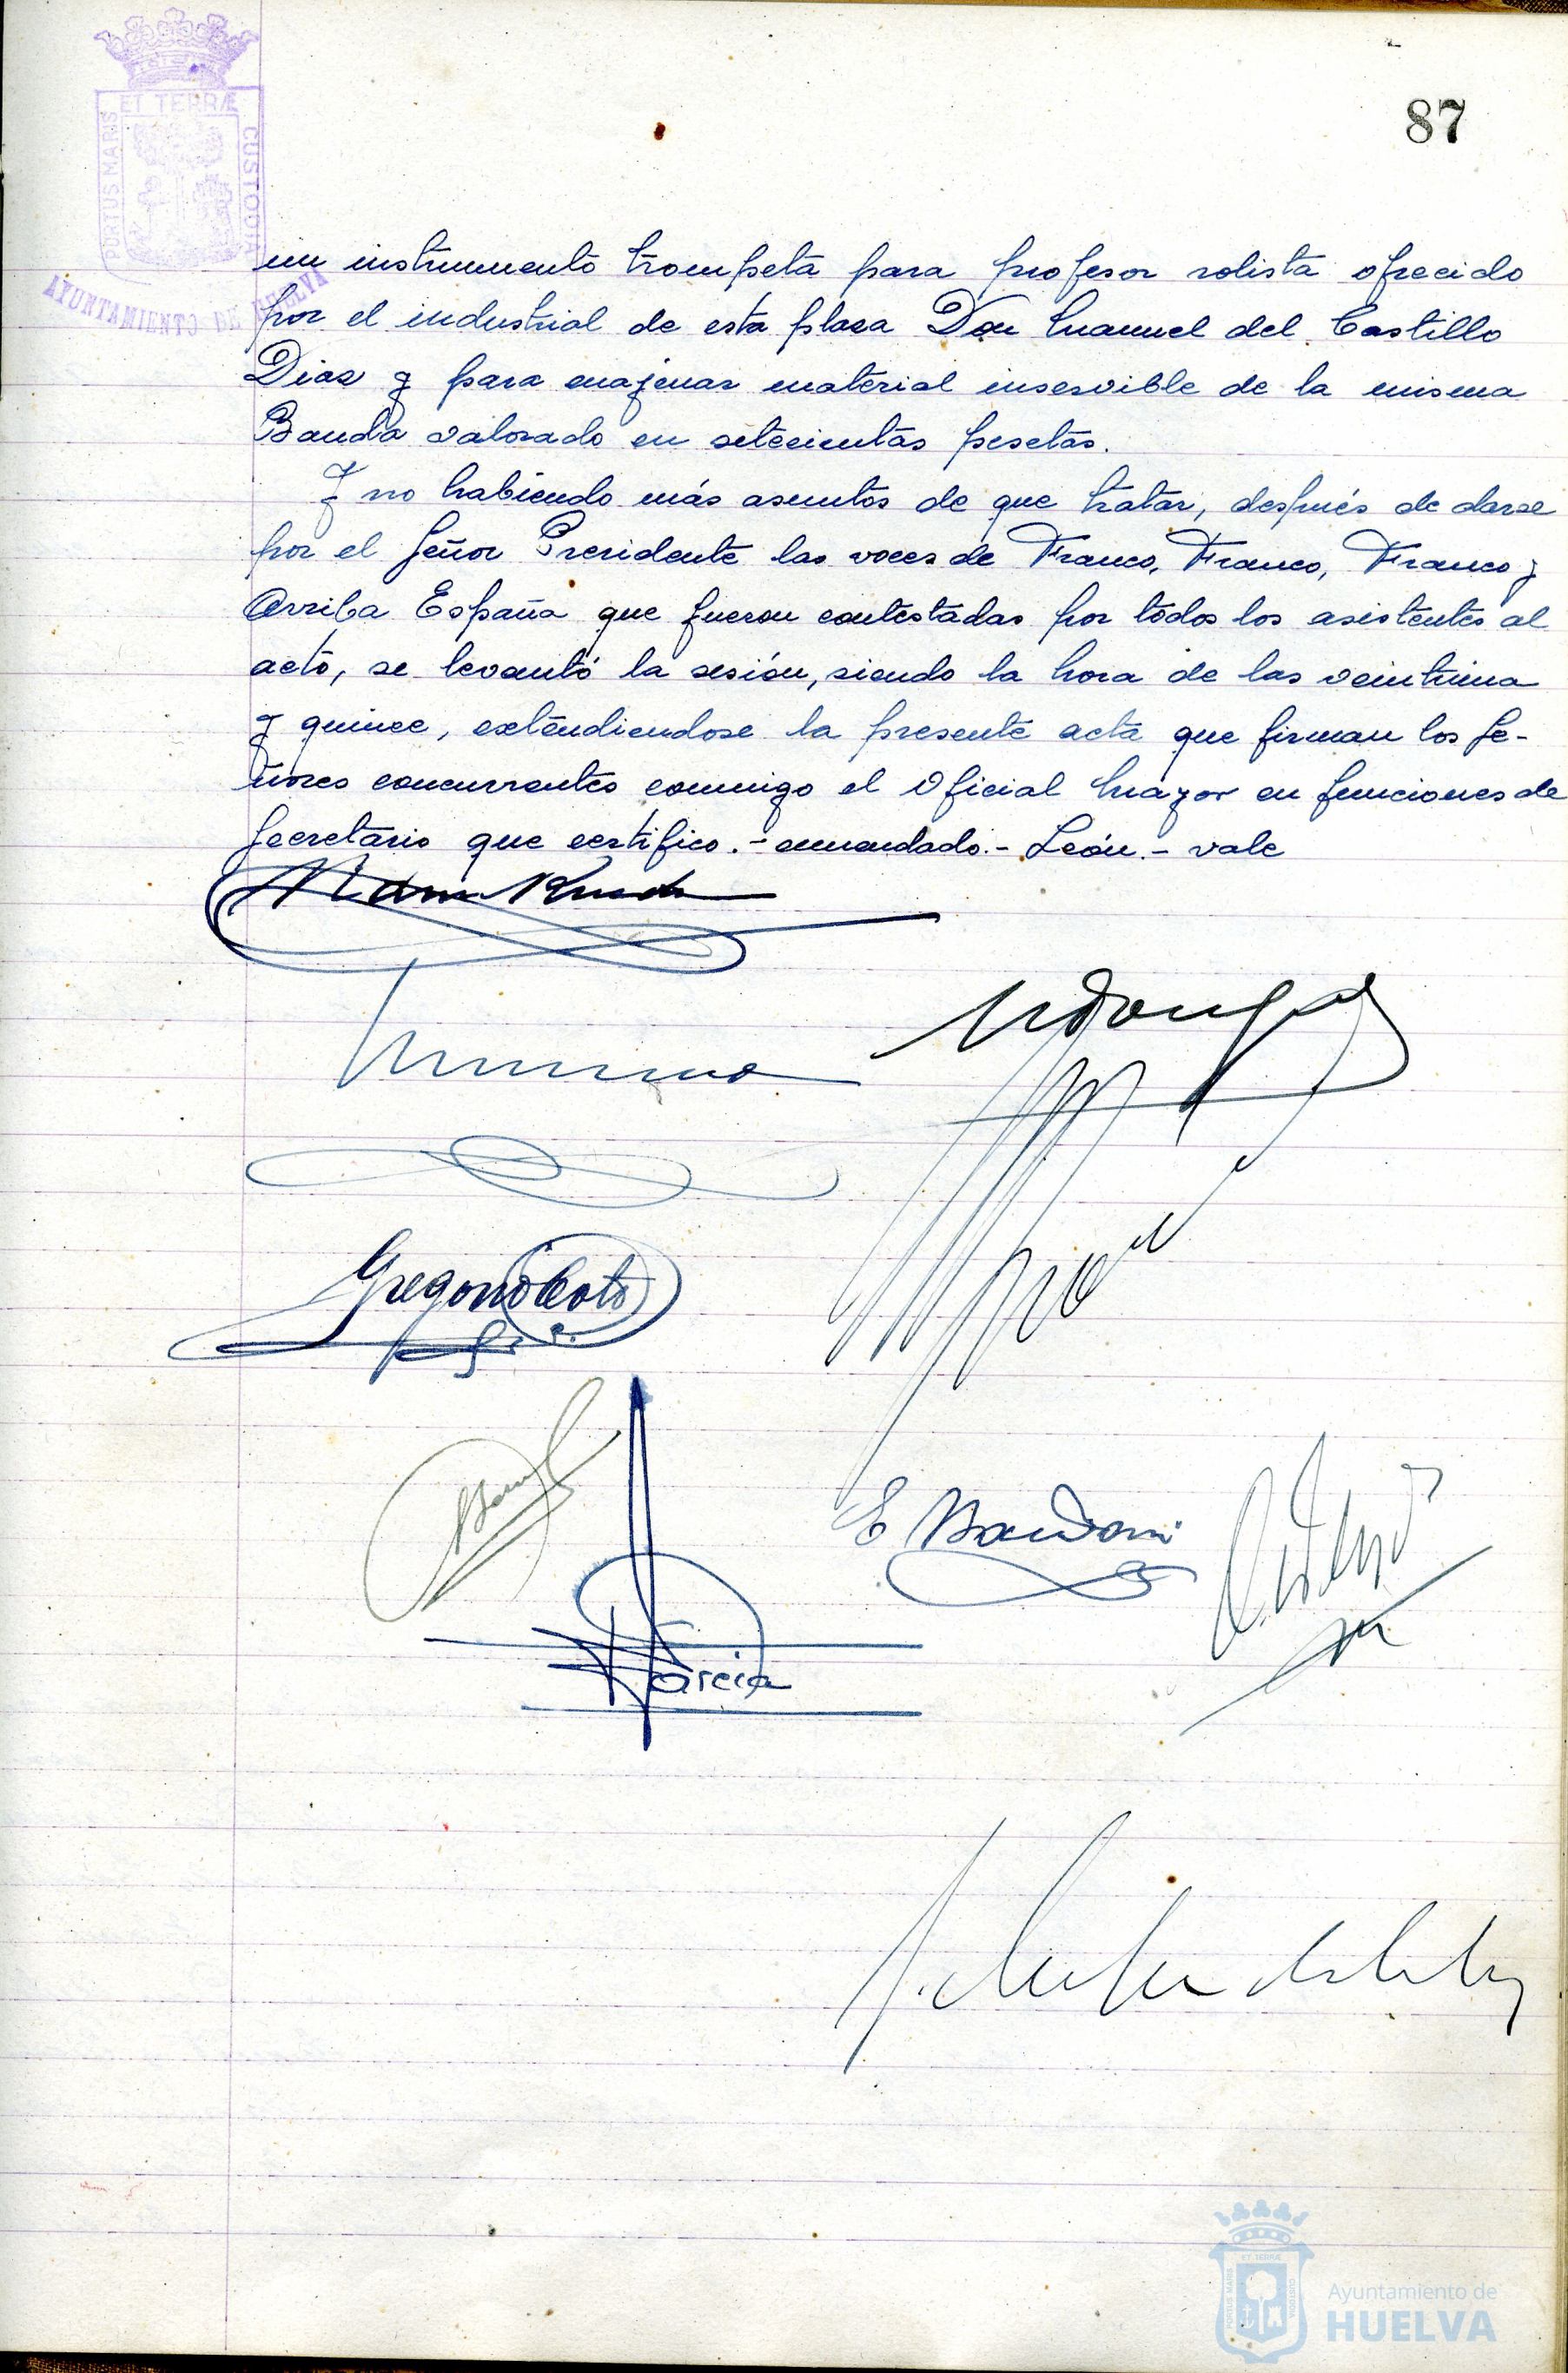 ET TERRÆ
PORTUS MARIS
CUSTODIA
AYUNTAMIENTO DE HUELVA
87
un instrumento trompeta para profesor solista ofrecido
por el industrial de esta plaza Don Manuel del Castillo
Diaz y para enajenar material inservible de la misma
Banda valorado en setecientas pesetas.
Y no habiendo más asuntos de que tratar, después de darse
por el Señor Presidente las voces de Franco, Franco, Franco y
Arriba España que fueron contestadas por todos los asistentes al
acto, se levantó la sesión, siendo la hora de las veintiuna
y quince, extendiendose la presente acta que firman los Se-
ñores concurrentes conmigo el Oficial Mayor en funciones de
Secretario que certifico.- enmendado.- León.- vale
Gregorio Coto
Garcia
ET TERRÆ
PORTUS MARIS
CUSTODIA
Ayuntamiento de
HUELVA